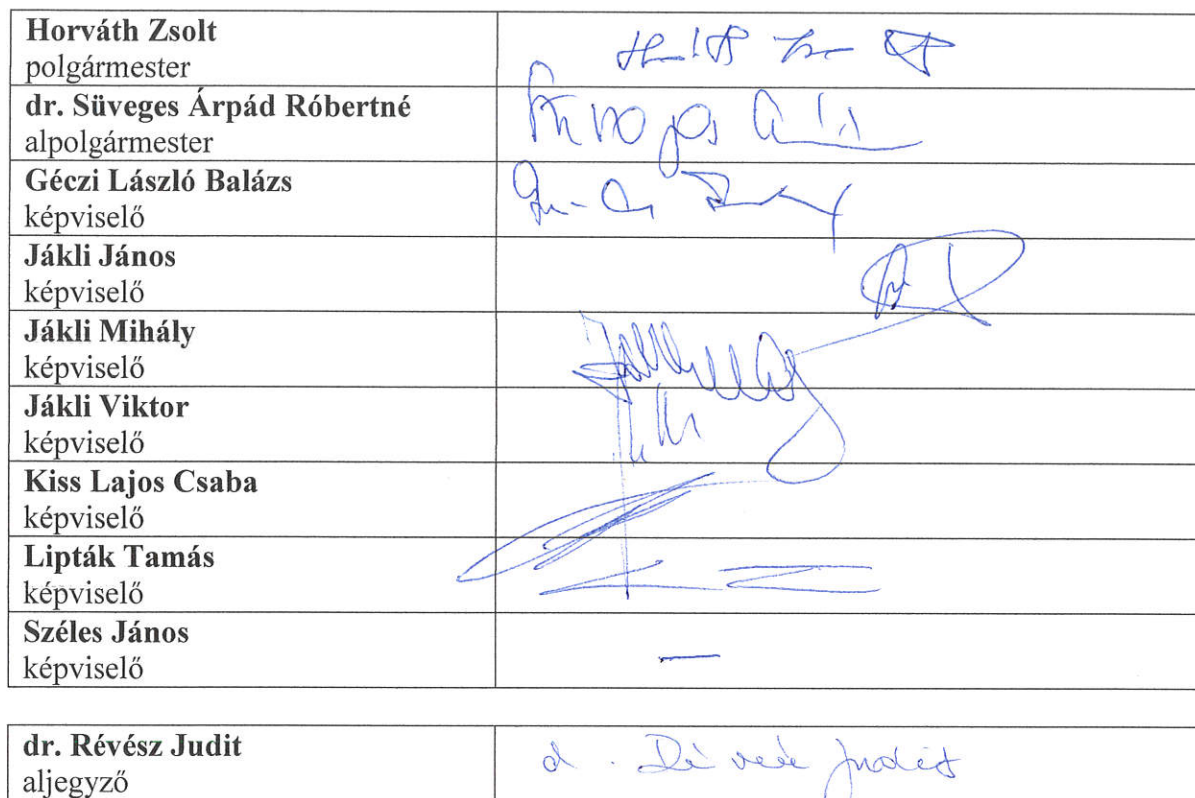 Horváth Zsolt
polgármester
dr. Süveges Árpád Róbertné
alpolgármester
Géczi László Balázs
képviselő
Jákli János
képviselő
Jákli Mihály
képviselő
Jákli Viktor
képviselő
Kiss Lajos Csaba
képviselő
Lipták Tamás
képviselő
Széles János
képviselő
—
dr. Révész Judit
aljegyző
Judit